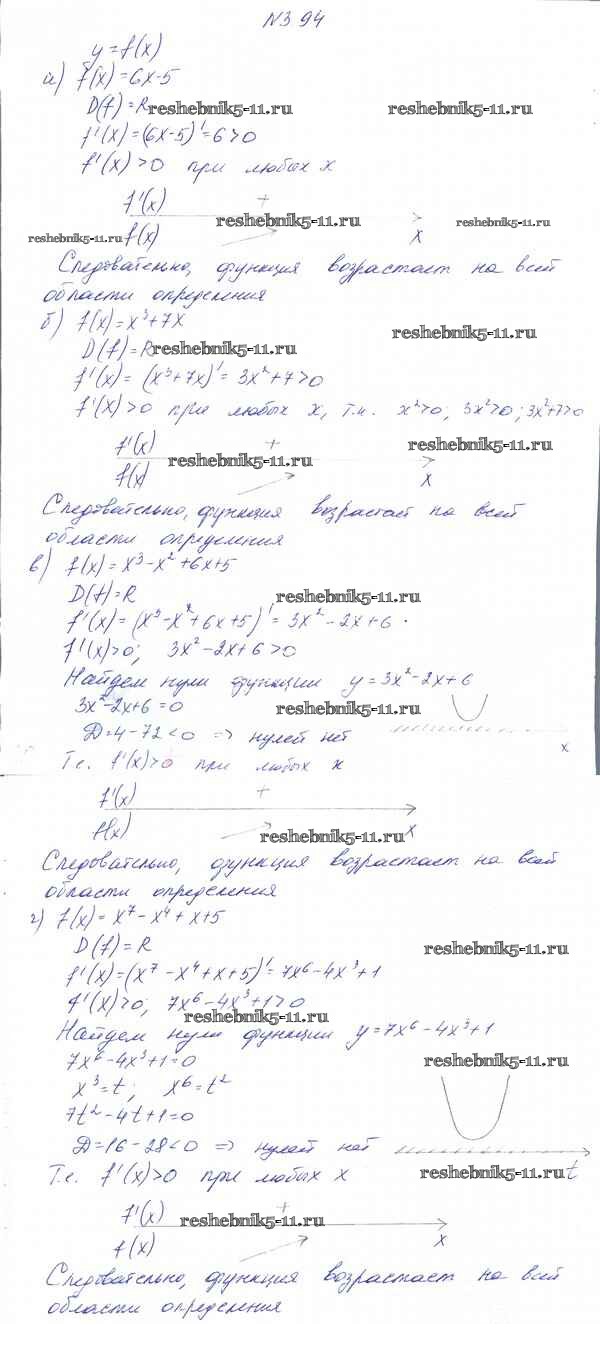 №394
y=f(x)
а) f(x)=6x-5
D(f)=R reshebnik5-11.ru reshebnik5-11.ru
f'(x)=(6x-5)'=6>0
f'(x)>0 при любых x
f'(x) +
reshebnik5-11.ru reshebnik5-11.ru
reshebnik5-11.ru f(x) x
Следовательно, функция возрастает на всей
области определения
б) f(x)=x³+7x reshebnik5-11.ru
D(f)=R reshebnik5-11.ru
f'(x)=(x³+7x)'=3x²+7>0
f'(x)>0 при любых x, т.к. x²>0, 3x²>0; 3x²+7>0
f'(x) + reshebnik5-11.ru
reshebnik5-11.ru
f(x) x
Следовательно, функция возрастает на всей
области определения
в) f(x)=x³-x²+6x+5
D(f)=R reshebnik5-11.ru
f'(x)=(x³-x²+6x+5)'=3x²-2x+6.
f'(x)>0; 3x²-2x+6>0
Найдем нули функции y=3x²-2x+6
3x²-2x+6=0 reshebnik5-11.ru
Д=4-72<0 => нулей нет
x
Т.е. f'(x)>0 при любых x
f'(x) +
f(x) reshebnik5-11.ru x
Следовательно, функция возрастает на всей
области определения
г) f(x)=x⁷-x⁴+x+5
D(f)=R reshebnik5-11.ru
f'(x)=(x⁷-x⁴+x+5)'=7x⁶-4x³+1
f'(x)>0; 7x⁶-4x³+1>0
reshebnik5-11.ru
Найдем нули функции y=7x⁶-4x³+1
7x⁶-4x³+1=0 reshebnik5-11.ru
x³=t; x⁶=t²
7t²-4t+1=0
Д=16-28<0 => нулей нет
Т.е. f'(x)>0 при любых x reshebnik5-11.ru t
f'(x) reshebnik5-11.ru +
f(x) x
Следовательно, функция возрастает на всей
области определения